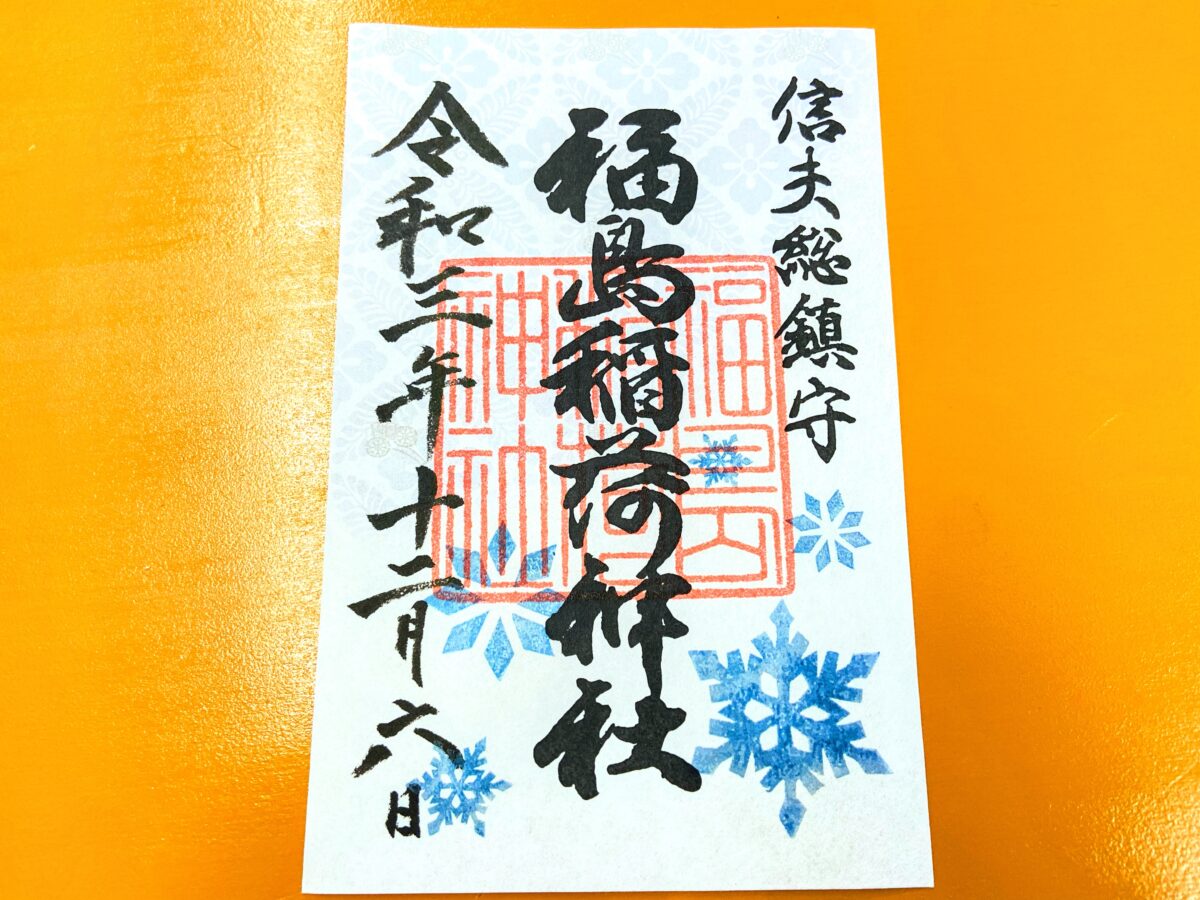 信夫総鎮守
福島稲荷神社
福島稲荷神社
令和三年十二月六日